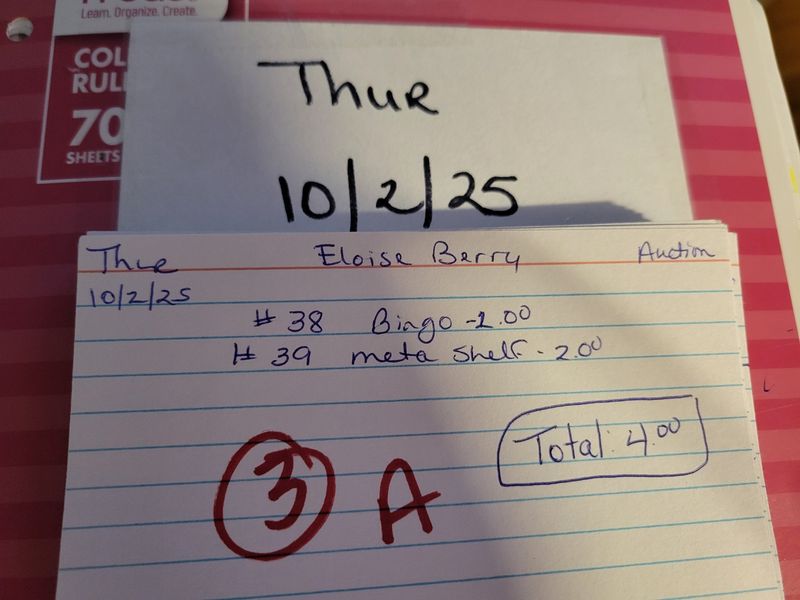 Learn. Organize. Create.
COL
RUL
70
SHEETS
Thur
10/2/25
Thur Eloise Berry Auction
10/2/25
# 38 Bingo - 2.00
# 39 meta shelf - 2.00
Total: 4.00
3 A